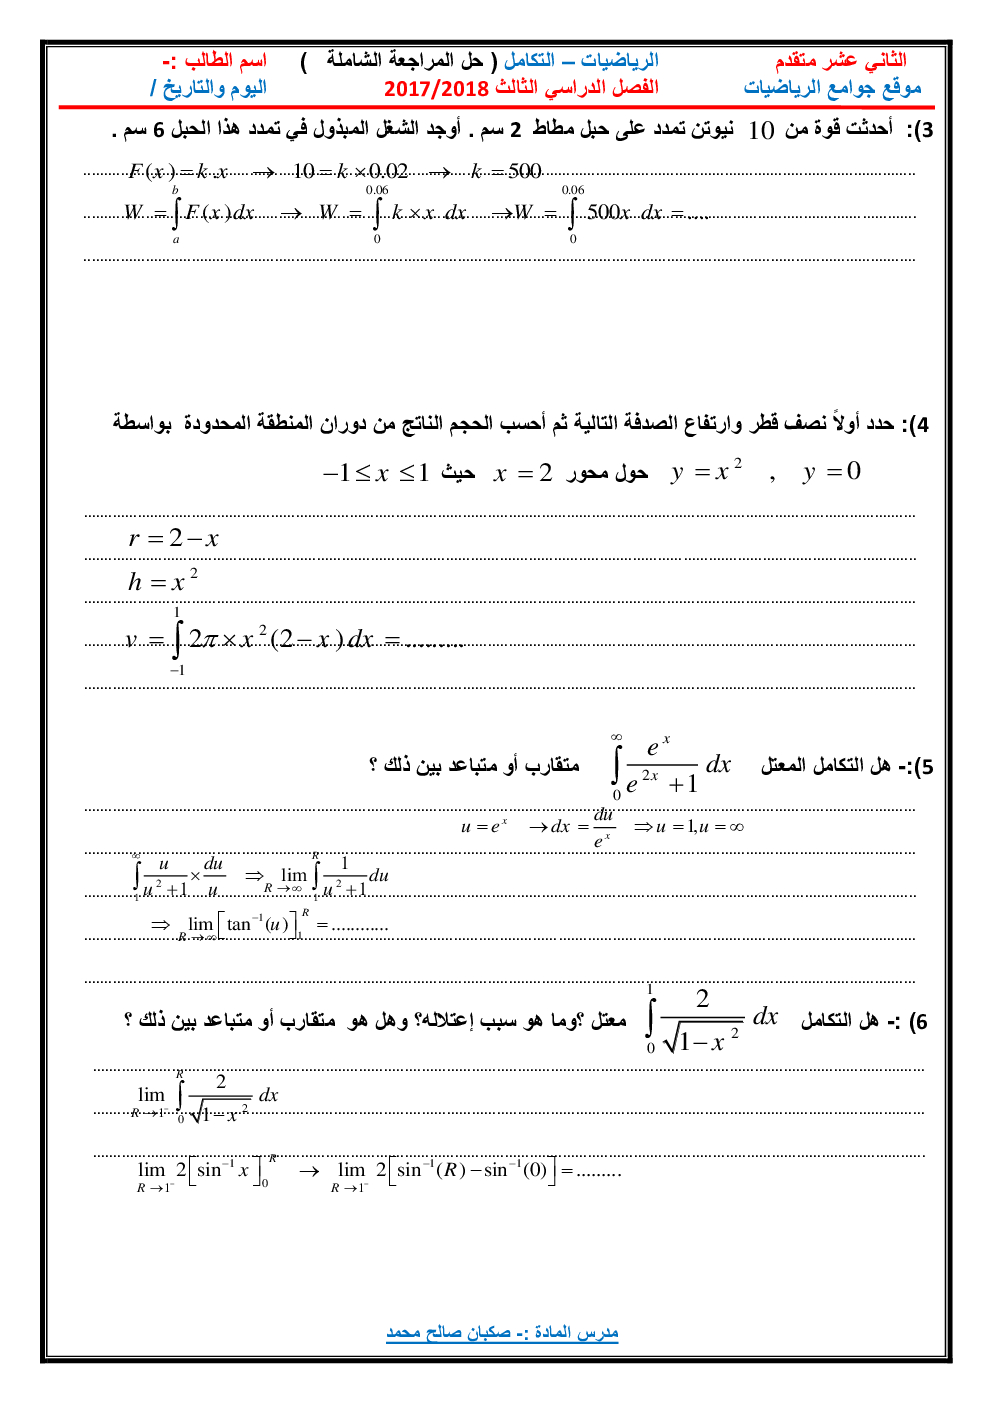 الثاني عشر متقدم الرياضيات – التكامل ( حل المراجعة الشاملة ) اسم الطالب :-
موقع جوامع الرياضيات الفصل الدراسي الثالث 2017/2018 اليوم والتاريخ /
3): أحدثت قوة من 10 نيوتن تمدد على حبل مطاط 2 سم . أوجد الشغل المبذول في تمدد هذا الحبل 6 سم .
F(x) = k.x → 10 = k × 0.02 → k = 500
W = ∫_a^b F(x)dx → W = ∫_0^0.06 k × x dx → W = ∫_0^0.06 500x dx = ....
4): حدد أولاً نصف قطر وارتفاع الصدفة التالية ثم أحسب الحجم الناتج من دوران المنطقة المحدودة بواسطة
y = x² , y = 0 حول محور x = 2 حيث −1 ≤ x ≤ 1
r = 2 − x
h = x²
v = ∫_−1^1 2π × x²(2 − x)dx = .........
5):- هل التكامل المعتل ∫_0^∞ e^x/(e^2x + 1) dx متقارب أو متباعد بين ذلك ؟
u = e^x → dx = du/e^x ⇒ u = 1, u = ∞
∫_1^∞ u/(u² + 1) × du/u ⇒ lim_R→∞ ∫_1^R 1/(u² + 1) du
⇒ lim_R→∞ [tan⁻¹(u)]_1^R = ............
6) :- هل التكامل ∫_0^1 2/√(1 − x²) dx معتل ؟وما هو سبب إعتلاله؟ وهل هو متقارب أو متباعد بين ذلك ؟
lim_R→1⁻ ∫_0^R 2/√(1 − x²) dx
lim_R→1⁻ 2[sin⁻¹ x]_0^R → lim_R→1⁻ 2[sin⁻¹(R) − sin⁻¹(0)] = .........
مدرس المادة :- صكبان صالح محمد